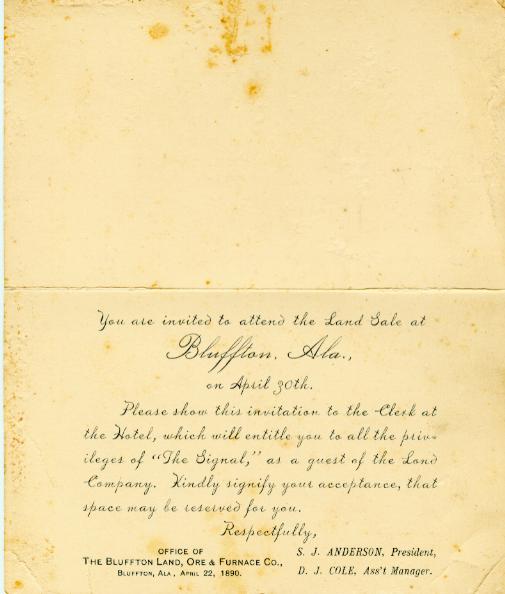 You are invited to attend the Land Sale at
Bluffton, Ala.,
on April 30th.
Please show this invitation to the Clerk at
the Hotel, which will entitle you to all the priv-
ileges of "The Signal," as a guest of the Land
Company. Kindly signify your acceptance, that
space may be reserved for you.
Respectfully,
OFFICE OF
THE BLUFFTON LAND, ORE & FURNACE CO.,
BLUFFTON, ALA., APRIL 22, 1890.
S. J. ANDERSON, President,
D. J. COLE, Ass't Manager.